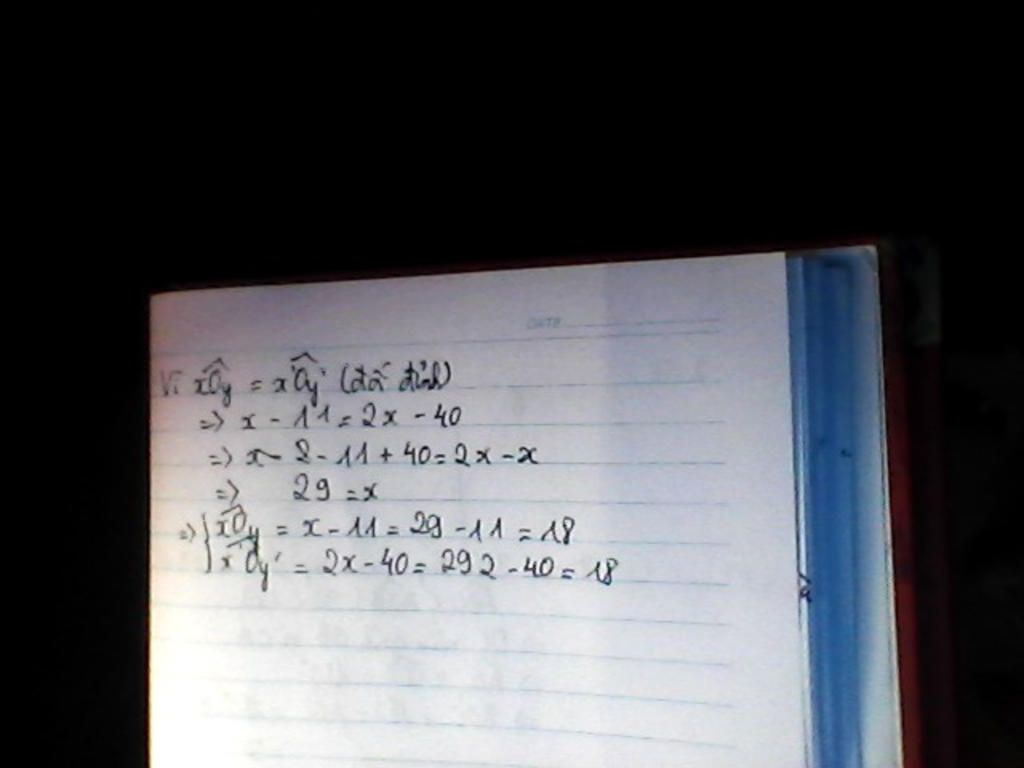 DATE
Vì xOy = x'Oy' (đối đỉnh)
=> x - 11 = 2x - 40
=> x - 2 - 11 + 40 = 2x - x
=> 29 = x
=> { xOy = x - 11 = 29 - 11 = 18
x'Oy' = 2x - 40 = 29 2 - 40 = 18